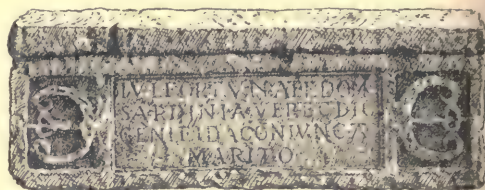 IVL FORTVNATE DOM
SARDINIA VEREC DI
GENI FIDA CONIVNCTA
MARITO